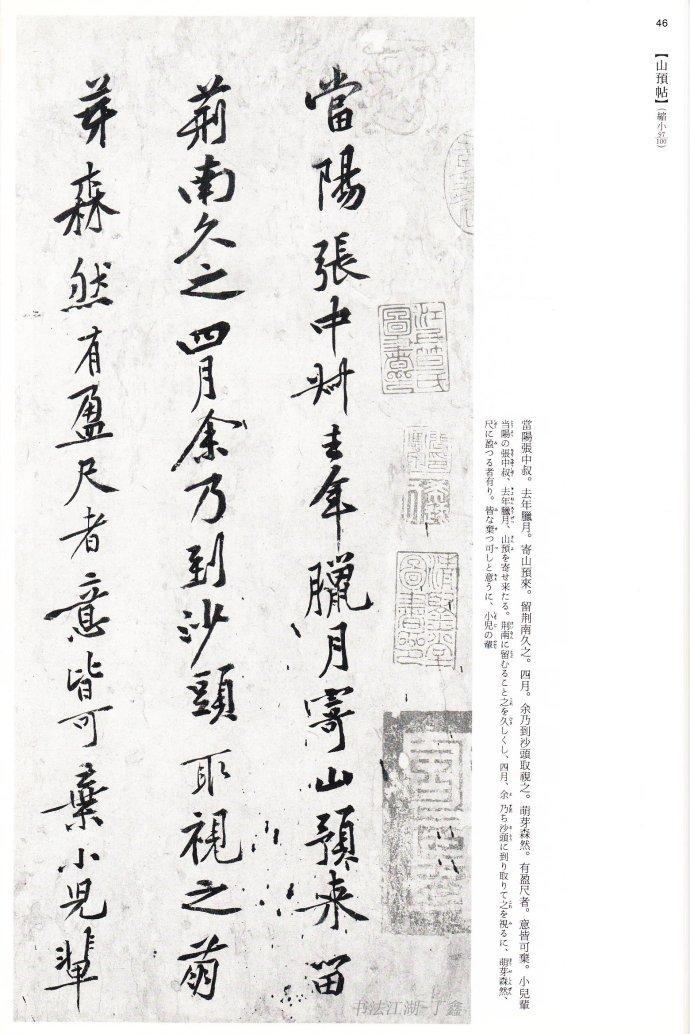 46
【山預帖】(縮小97/100)
當陽張中叔。去年臘月。寄山預來。留荆南久之。四月。余乃到沙頭取視之。萌芽森然。有盈尺者。意皆可棄。小兒輩
当陽の張中叔、去年臘月、山預を寄せ来たる。荆南に留むること之を久しくし、四月、余乃ち沙頭に到り取りて之を視るに、萌芽森然、
尺に盈つる者有り。皆な棄つ可しと意うに、小児の輩
當陽張中叔去年臘月寄山預来留
荊南久之四月余乃到沙頭取視之萌
芽森然有盈尺者意皆可棄小兒輩
书法江湖-丁鑫